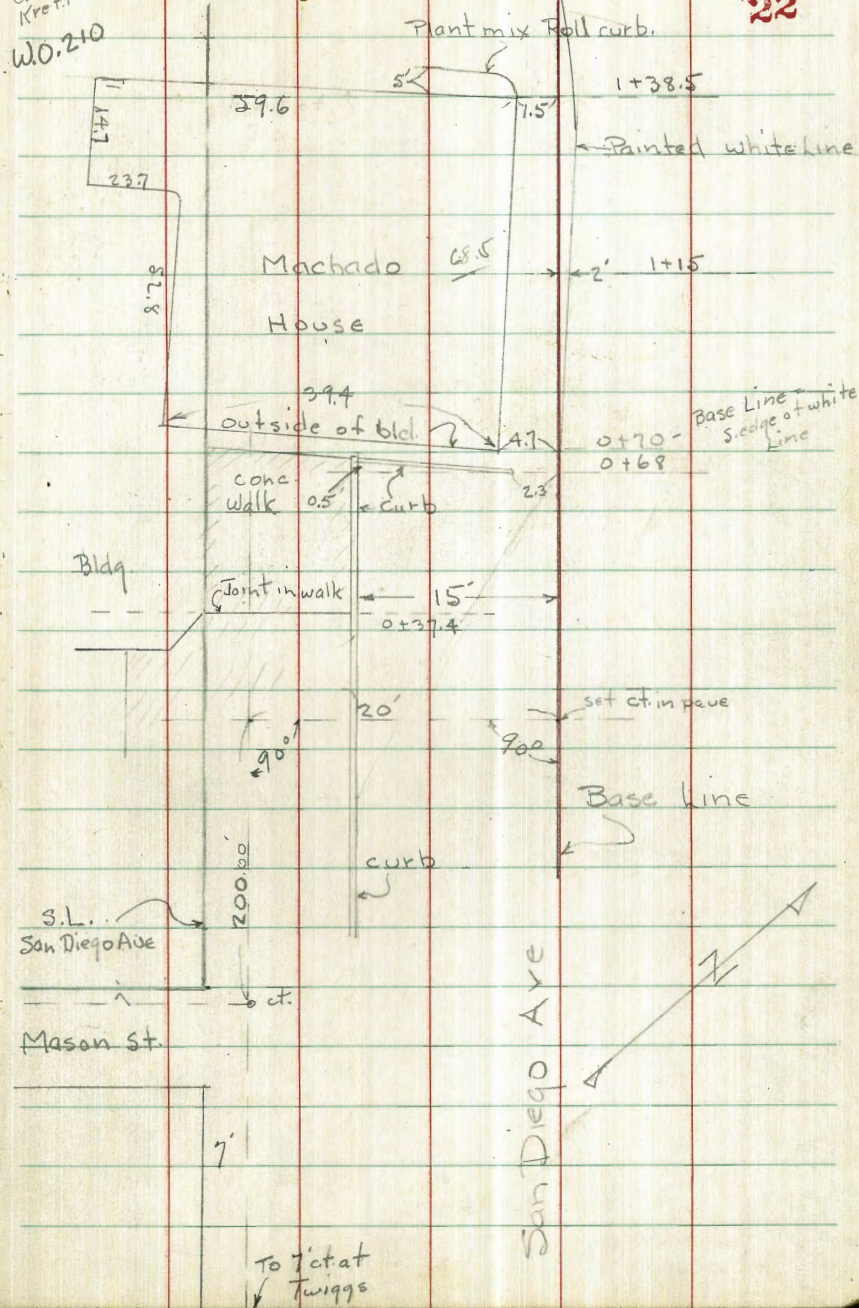 22
W.O.210
Plant mix Roll curb.
5'
29.6
7.5'
1+38.5
14.7
Painted white Line
23.7
Machado
House
68.5
2'
1+15
52.8
39.4
outside of bld.
4.7
0+70-
0+68
Base Line -
S. edge of white
Line
conc.
walk
0.5'
curb
2.3'
Bldg.
Joint in walk
15'
0+37.4
20'
set ct. in pave
90°
90°
Base Line
200.00'
curb
S.L.
San Diego Ave
ct.
Mason St.
N
San Diego Ave
7'
To 7' ct. at
Twiggs